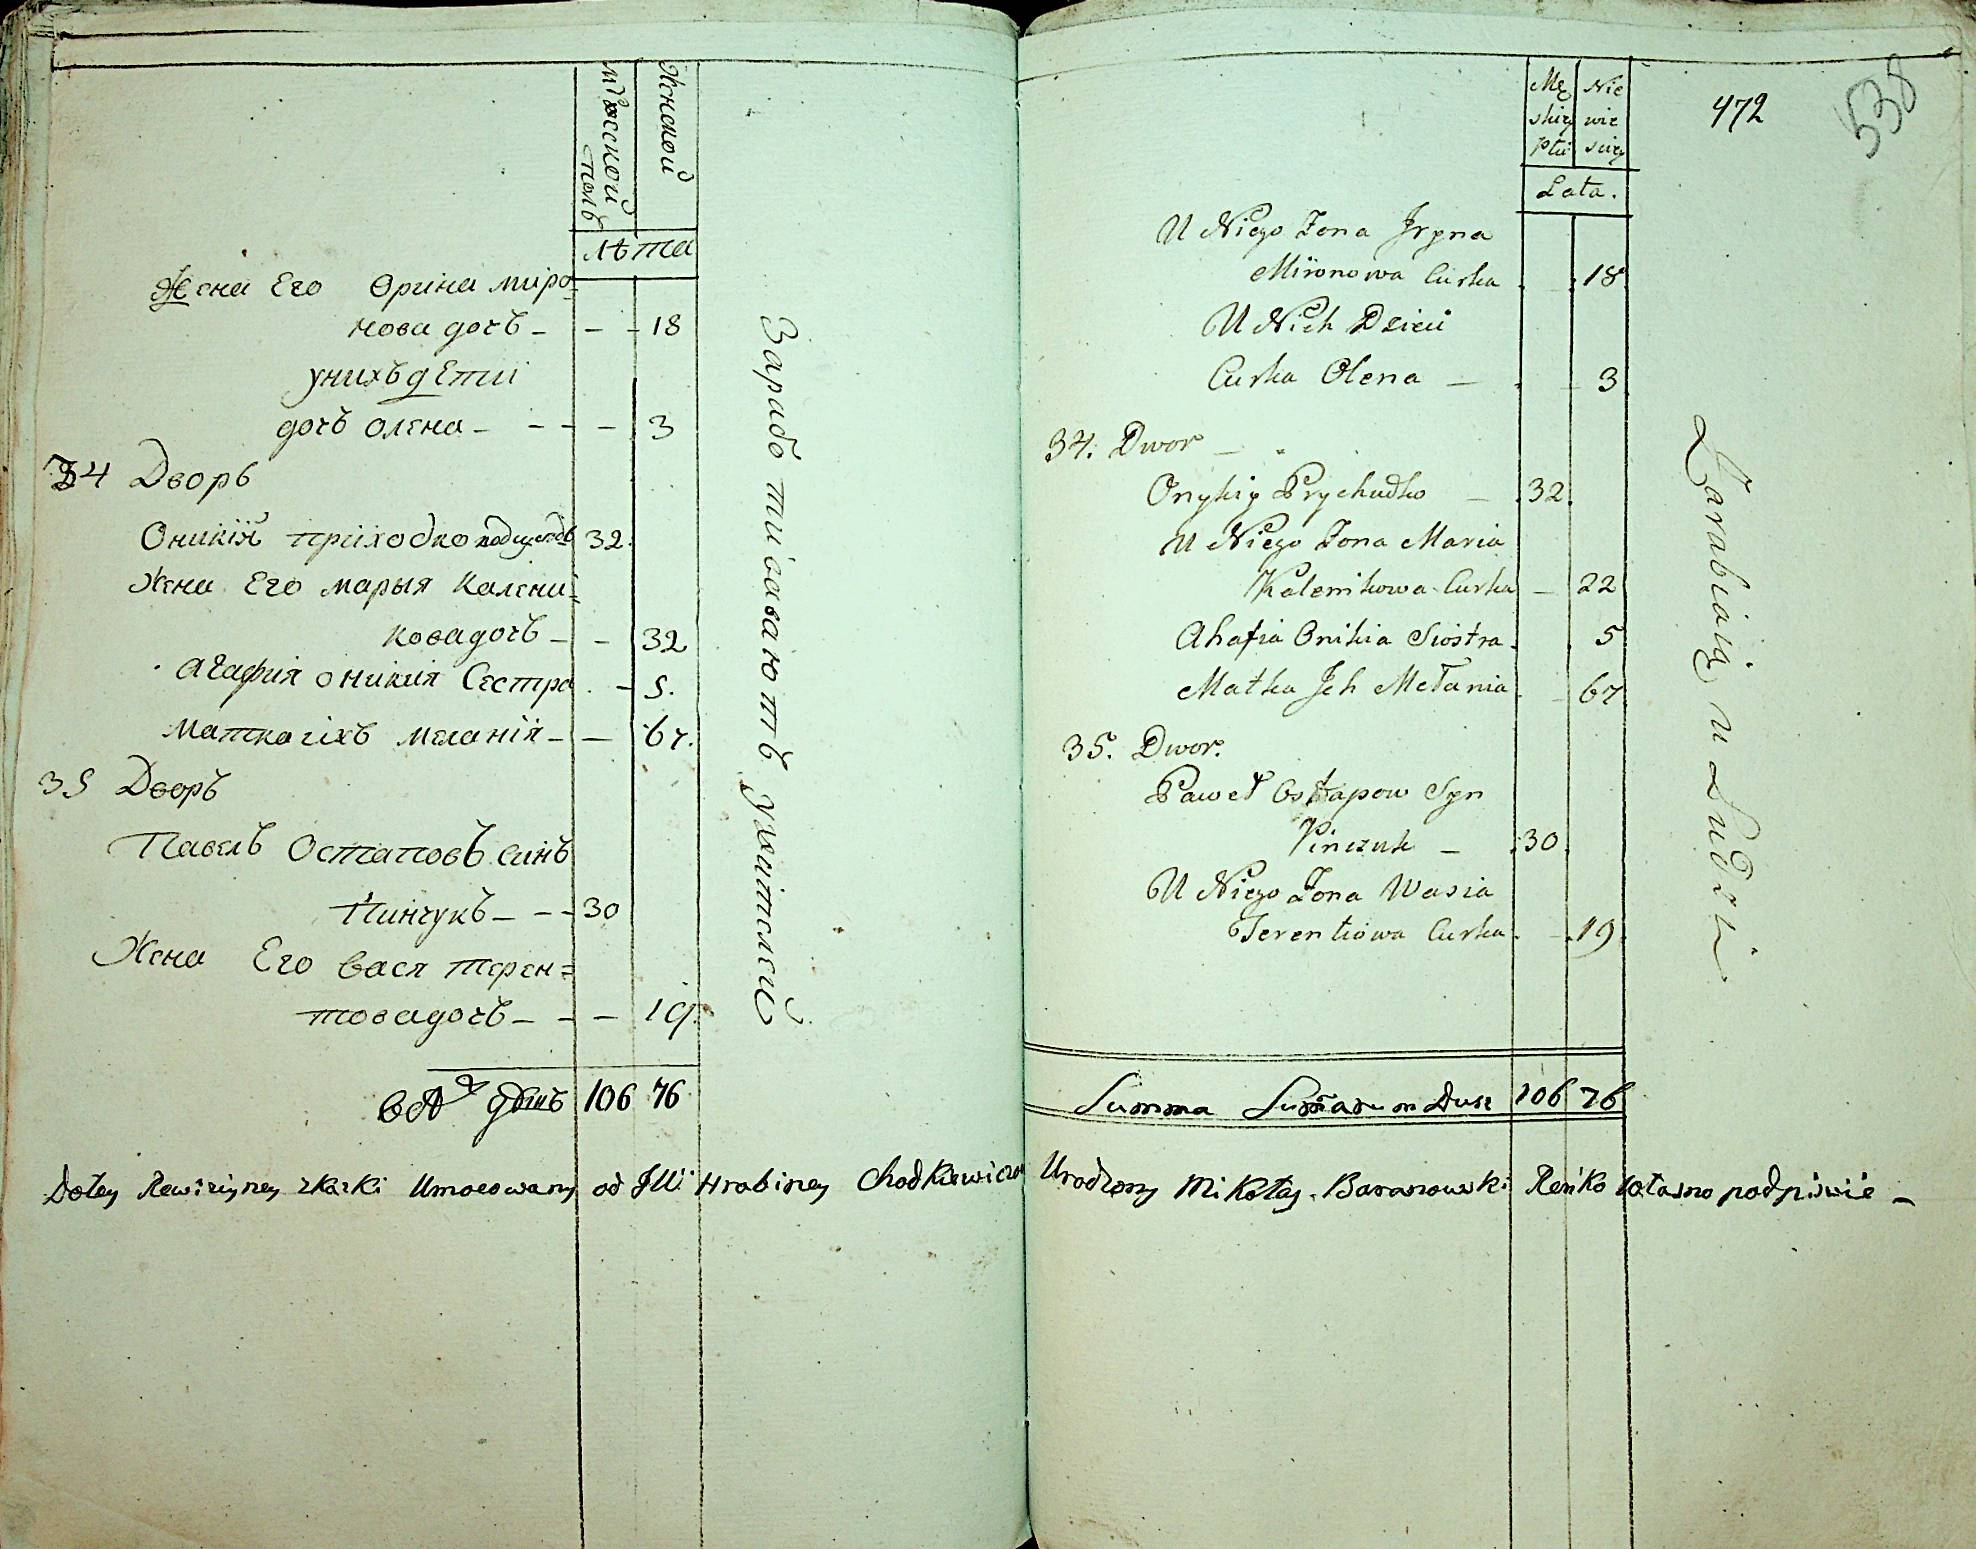 мужской
полъ
Женской
лѣта
Жена Его Орина миро=
нова дочъ - - - 18
унихъ дЕтиі
дочъ олена - - - - 3
34 Дворъ
Оникій приіходко 32.
Жена Его марыя калени=
ковадочъ - - 32
агафия оникия Сестра - 5.
матка ихъ меланія - - 67.
35 Дворъ
Павелъ Остаповъ синъ
Пинчукъ - - - 30
Жена Его вася терен=
товадочъ - - - 19.
душъ 106 76
Зарабо тиіоваютъ ужителей
Mę
skiey
Płci
Nie
wie
sciey
Lata.
472
538
U Niego Żona Jryna
Mironowa Curka 18
U Nich Dzieci
Curka Olena - 3
34. Dwor -
Onykiy Prychudko - 32.
U Niego Żona Maria
Kalenikowa Curka - 22
Ahafia Onikia Siostra. 5
Matka Jch Mełania. 67
35. Dwor.
Paweł Ostapow Syn
Pinczuk - 30.
U Niego Żona Wasia
Terentiowa Curka. - 19.
Zarabiaią u Ludzi
Summa Dusz 106 76
Do tey Rewizyiney skaski Umocowany od JW: Hrabiney Chodkiewiczow Urodzony Mikołay Baranowski Reńko własno podpisuie -